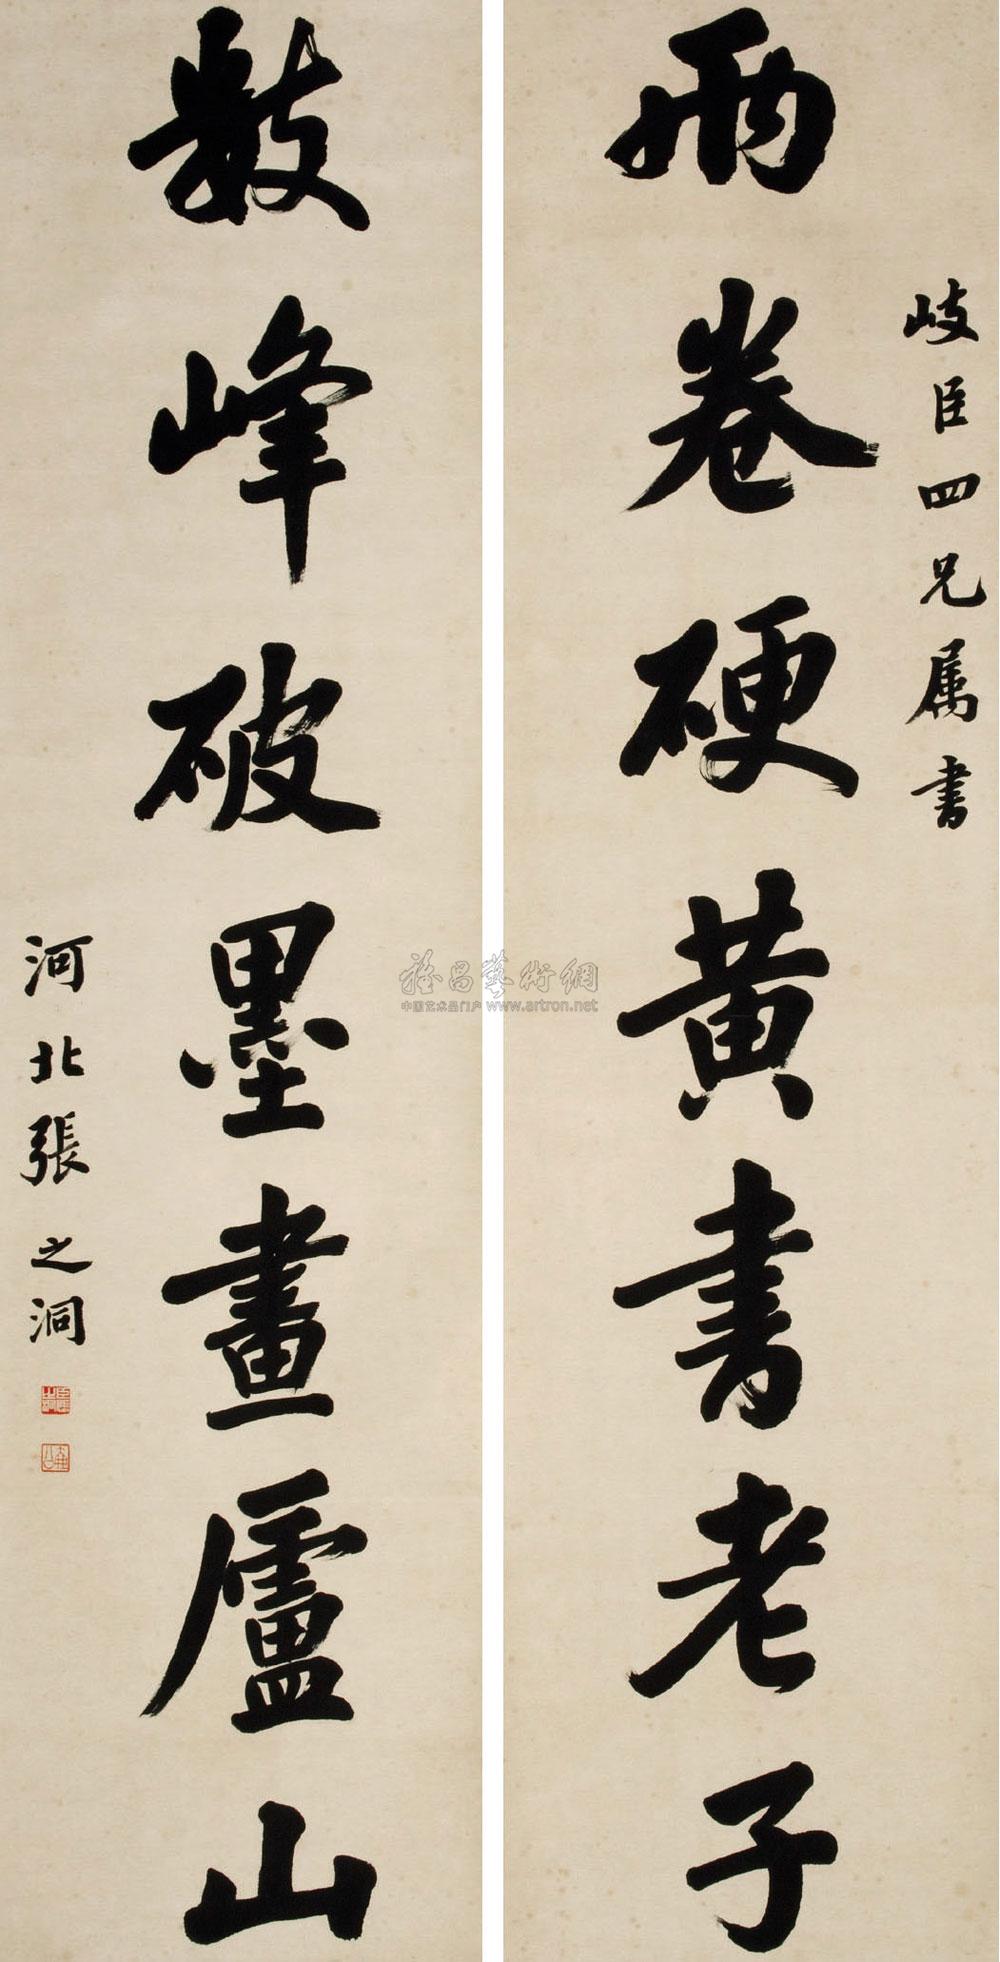 岐臣四兄属書
两卷硬黄書老子
數峰破墨畫廬山
河北張之洞
雅昌藝術網
中国艺术品门户 www.artron.net